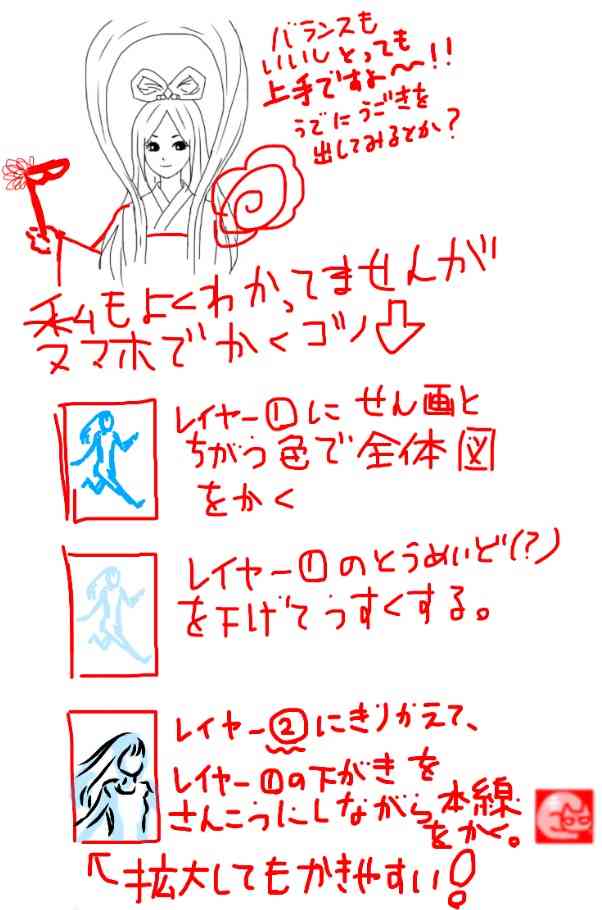 バランスも
いいしとっても
上手ですよ〜!!
うでにうごきを
出してみるとか?
私もよくわかってませんが
スマホでかくコツ⇩
レイヤー①にせん画と
ちがう色で全体図
をかく
レイヤー①のとうめいど(?)
を下げてうすくする。
レイヤー②にきりかえて、
レイヤー①の下がきを
さんこうにしながら本線
をかく。
←拡大してもかきやすい!